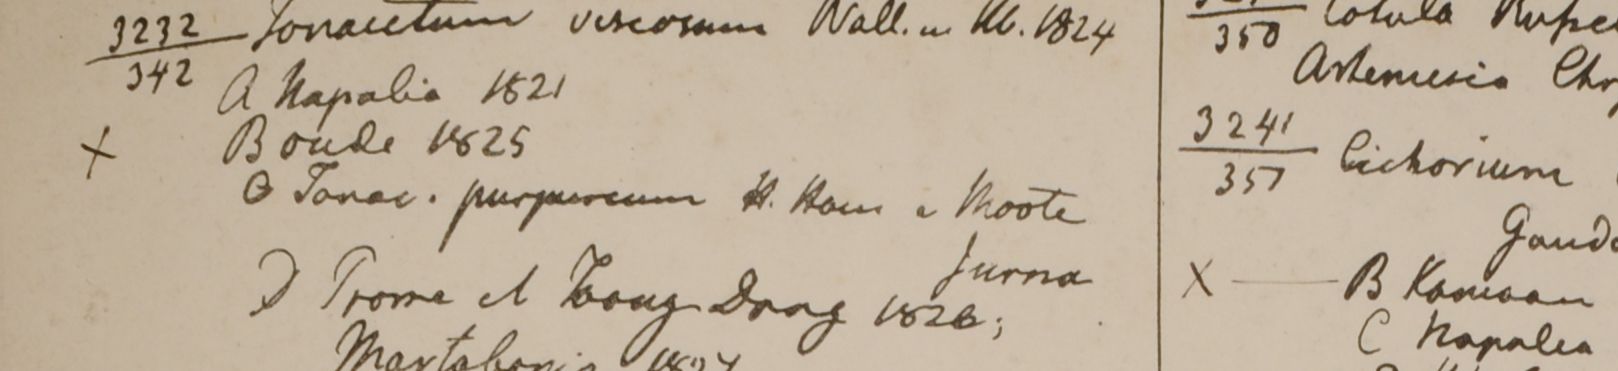 3232 Tanacetum viscosum Wall. in Hb. 1824
342
A Napalia 1821
X B oude 1825
C Tanac. purpureum H. Ham e Moote
Jurna
D Prome et Toong Dong 1826;
Martabania 1827
350 Cotula
Artemisia Chry
3241 Cichorium
351
X B Kamaon
C Napalia